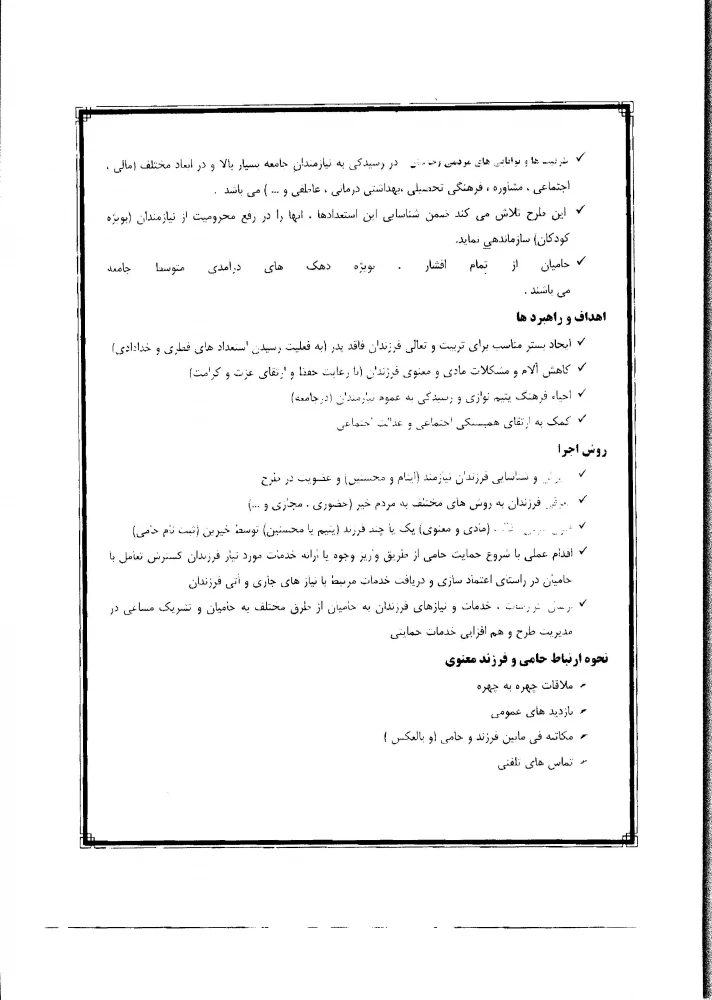 ✓ ظرفیت ها و توانایی های مردمی در رسیدگی به نیازمندان جامعه بسیار بالا و در ابعاد مختلف (مالی ،
اجتماعی ، مشاوره ، فرهنگی تحصیلی ،بهداشتی درمانی ، عاطفی و ... ) می باشد .
✓ این طرح تلاش می کند ضمن شناسایی این استعدادها ، آنها را در رفع محرومیت از نیازمندان (بویژه
کودکان) سازماندهی نماید.
✓ حامیان از تمام اقشار ، بویژه دهک های درآمدی متوسط جامعه
می باشند .
اهداف و راهبرد ها
✓ ایجاد بستر مناسب برای تربیت و تعالی فرزندان فاقد پدر (به فعلیت رسیدن استعداد های فطری و خدادادی)
✓ کاهش آلام و مشکلات مادی و معنوی فرزندان (با رعایت حفظ و ارتقای عزت و کرامت)
✓ احیاء فرهنگ یتیم نوازی و رسیدگی به عموم نیازمندان (درجامعه)
✓ کمک به ارتقای همبستگی اجتماعی و عدالت اجتماعی
روش اجرا
✓ و شناسایی فرزندان نیازمند (ایتام و محسنین) و عضویت در طرح
✓ معرفی فرزندان به روش های مختلف به مردم خیر (حضوری ، مجازی و ...)
✓ (مادی و معنوی) یک یا چند فرزند (یتیم یا محسنین) توسط خیرین (ثبت نام حامی)
✓ اقدام عملی با شروع حمایت حامی از طریق واریز وجوه یا ارائه خدمات مورد نیاز فرزندان گسترش تعامل با
حامیان در راستای اعتماد سازی و دریافت خدمات مرتبط با نیاز های جاری و آتی فرزندان
✓ ، خدمات و نیازهای فرزندان به حامیان از طرق مختلف به حامیان و تشریک مساعی در
مدیریت طرح و هم افزایی خدمات حمایتی
نحوه ارتباط حامی و فرزند معنوی
ملاقات چهره به چهره
بازدید های عمومی
مکاتبه فی مابین فرزند و حامی (و بالعکس )
تماس های تلفنی